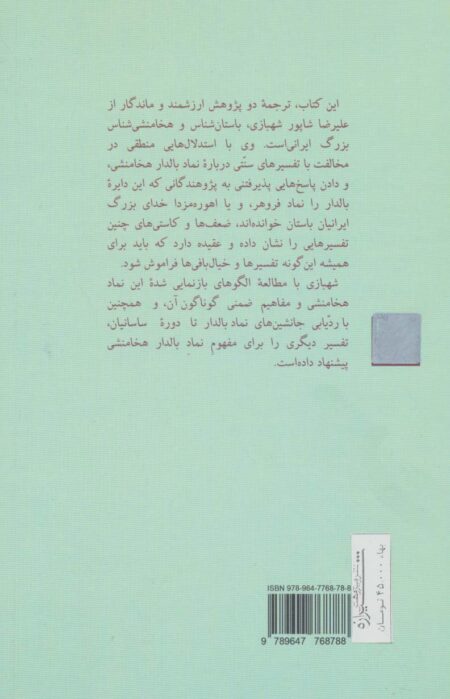 این کتاب، ترجمهٔ دو پژوهش ارزشمند و ماندگار از
علیرضا شاپور شهبازی، باستان‌شناس و هخامنشی‌شناس
بزرگ ایرانی‌است. وی با استدلال‌هایی منطقی در
مخالفت با تفسیرهای سنّتی دربارهٔ نماد بالدار هخامنشی،
و دادن پاسخ‌هایی پذیرفتنی به پژوهندگانی که این دایرهٔ
بالدار را نماد فروهر، و یا اهوره‌مزدا خدای بزرگ
ایرانیان باستان خوانده‌اند، ضعف‌ها و کاستی‌های چنین
تفسیرهایی را نشان داده و عقیده دارد که باید برای
همیشه این‌گونه تفسیرها و خیال‌بافی‌ها فراموش شود.
شهبازی با مطالعهٔ الگوهای بازنمایی شدهٔ این نماد
هخامنشی و مفاهیم ضمنی گوناگون آن، و همچنین
با ردّیابی جانشین‌های نماد بالدار تا دورهٔ ساسانیان،
تفسیر دیگری را برای مفهوم نماد بالدار هخامنشی
پیشنهاد داده‌است.
ISBN 978-964-7768-78-8
9 789647 768788
شیرازه
بها، ۴۵۰۰۰ تومان